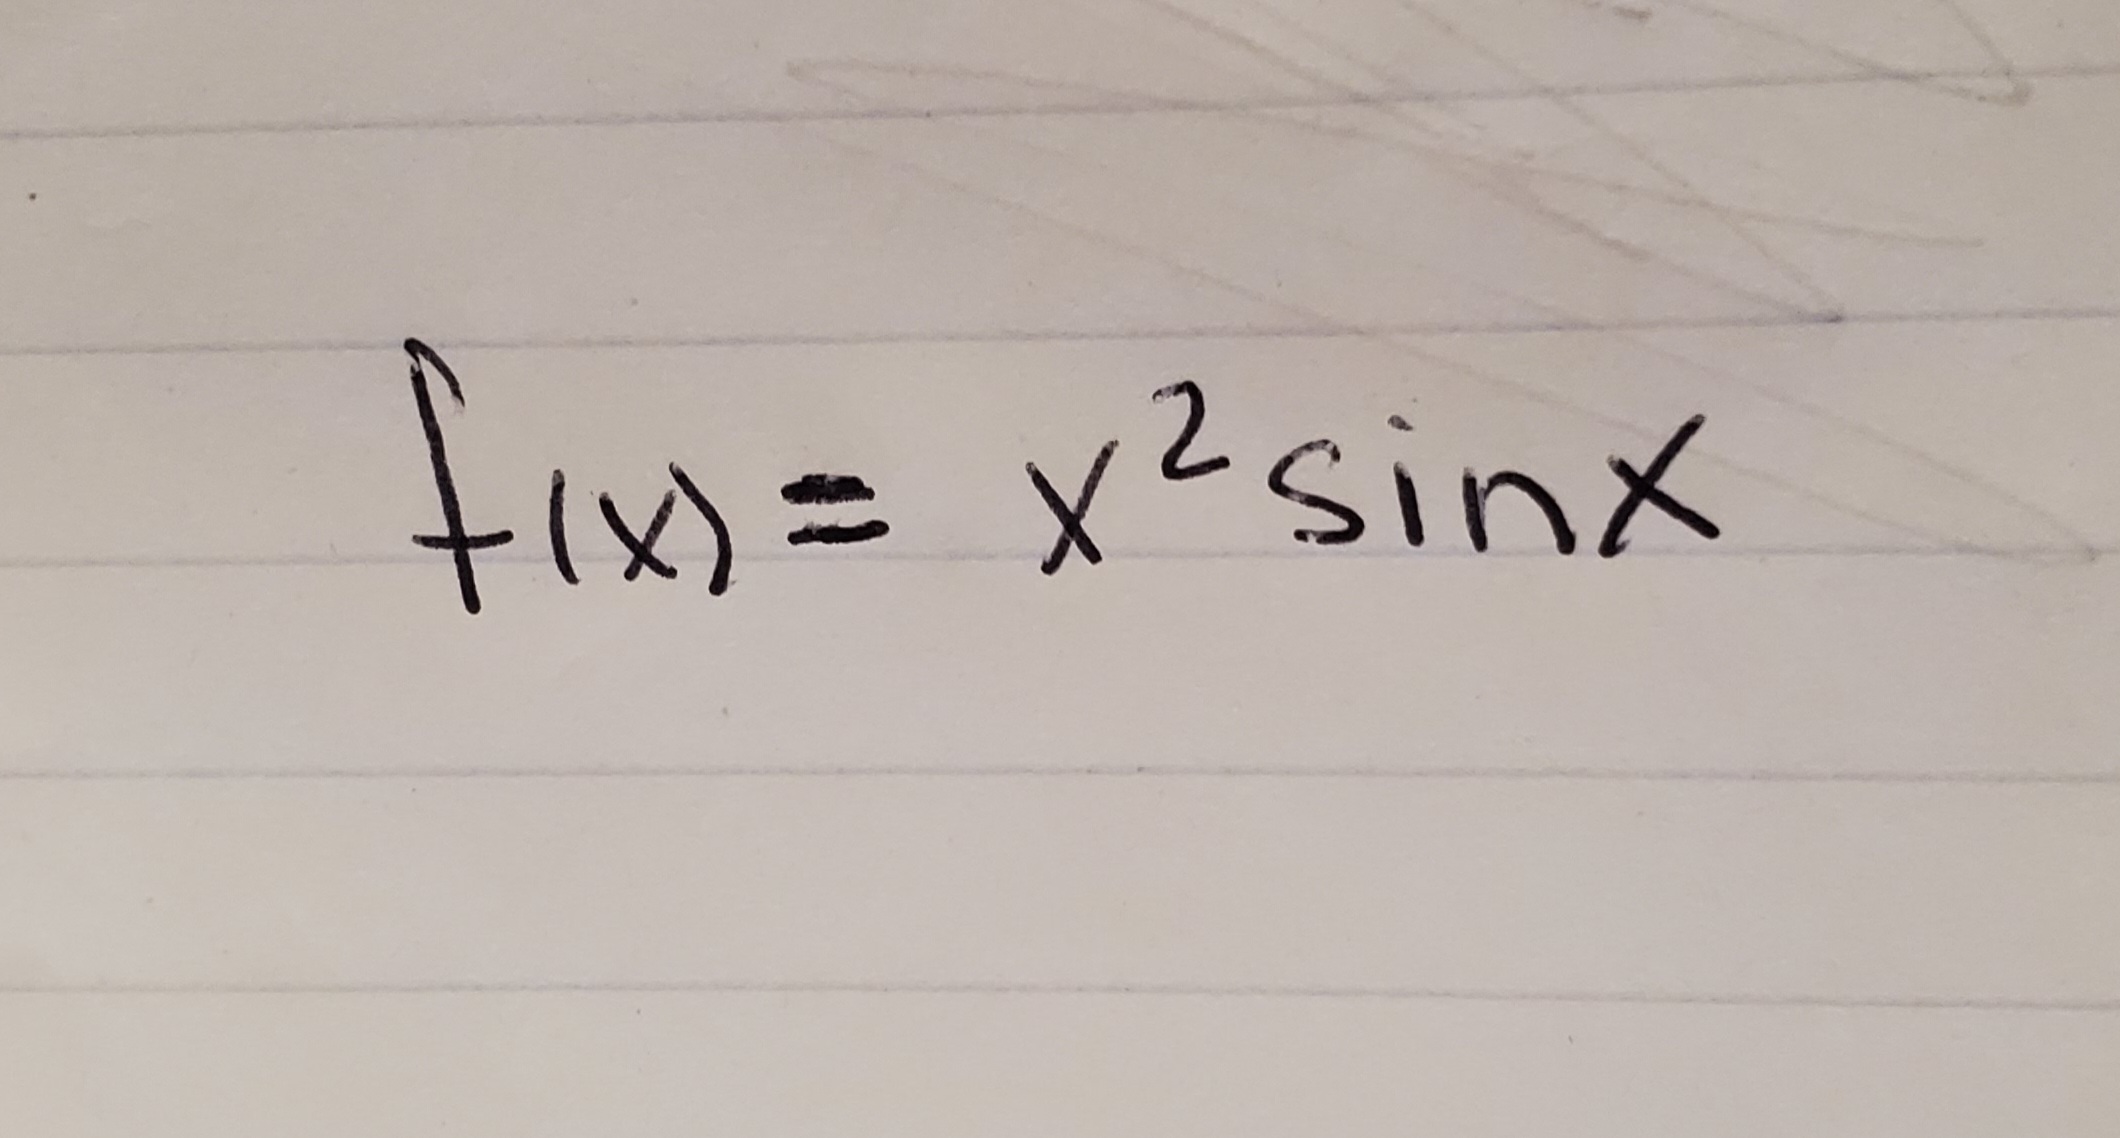 f(x) = x² sinx